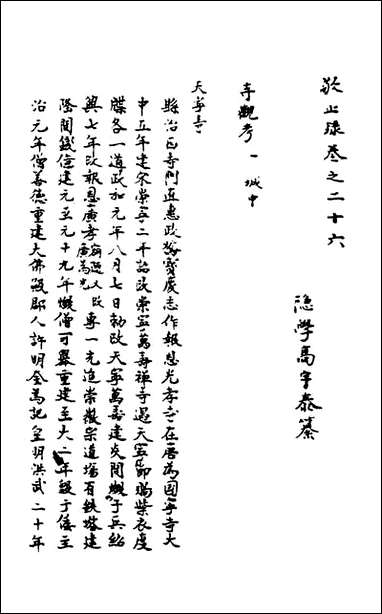 敬止录卷之二十六
隐學高宇泰纂
寺觀考一 城中
天寧寺
縣治西寺門直惠政橋寶慶志作報恩光孝寺在唐為國寧寺大
中五年建宋崇寧二年詔改崇寧萬壽禪寺遇天寧節賜紫衣度
牒各一道政和元年八月七日勅改天寧萬壽建炎間燬于兵紹
興七年改報恩廣孝改廣為光專一充追崇徽宗道場有鉄塔建
隆間錢億建元至元十九年燬僧可舉重建至大二年燬于倭至
治元年僧善德重建大佛殿郡人許明全為記皇明洪武二十年